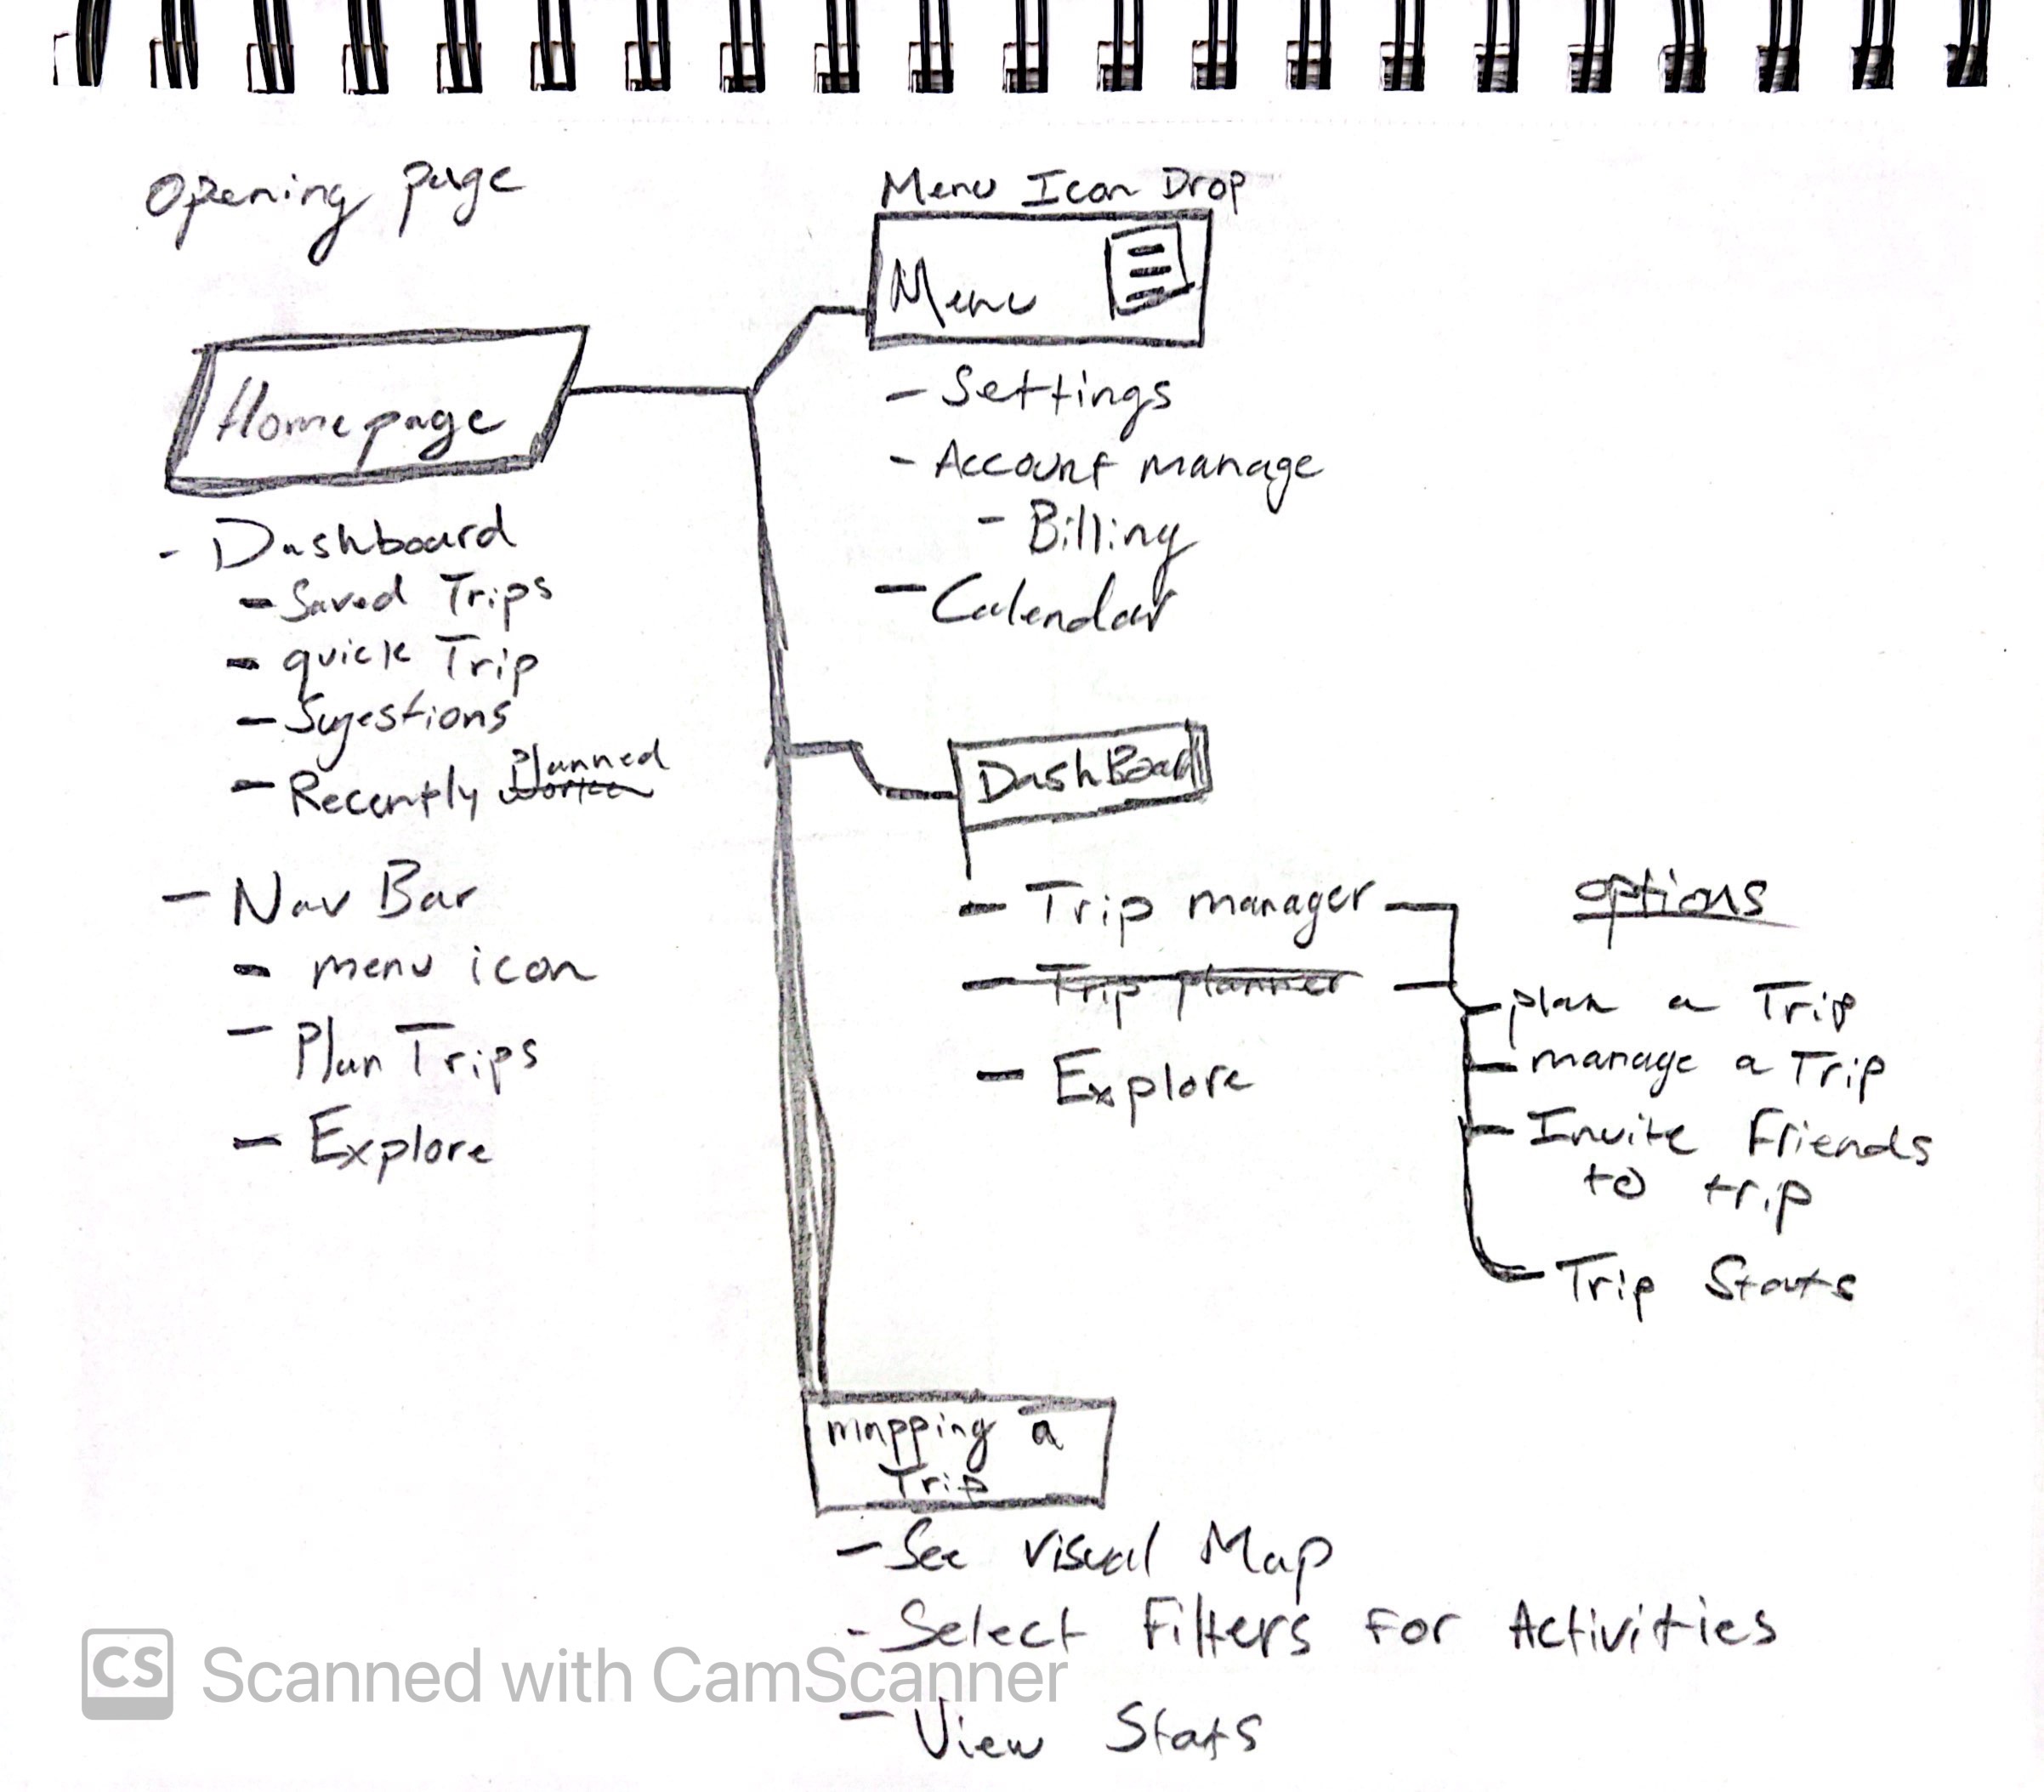 Opening page
Homepage
- Dashboard
- Saved Trips
- quick Trip
- Sugestions
- Recently Planned
- Nav Bar
- menu icon
- Plan Trips
- Explore
Menu Icon Drop
Menu
- Settings
- Account manage
- Billing
- Calendar
DashBoard
- Trip manager
- Trip planner
- Explore
options
- plan a Trip
- manage a Trip
- Invite Friends
to trip
- Trip Stats
mapping a
Trip
- See visual Map
- Select Filters For Activities
- View Stats
CS Scanned with CamScanner